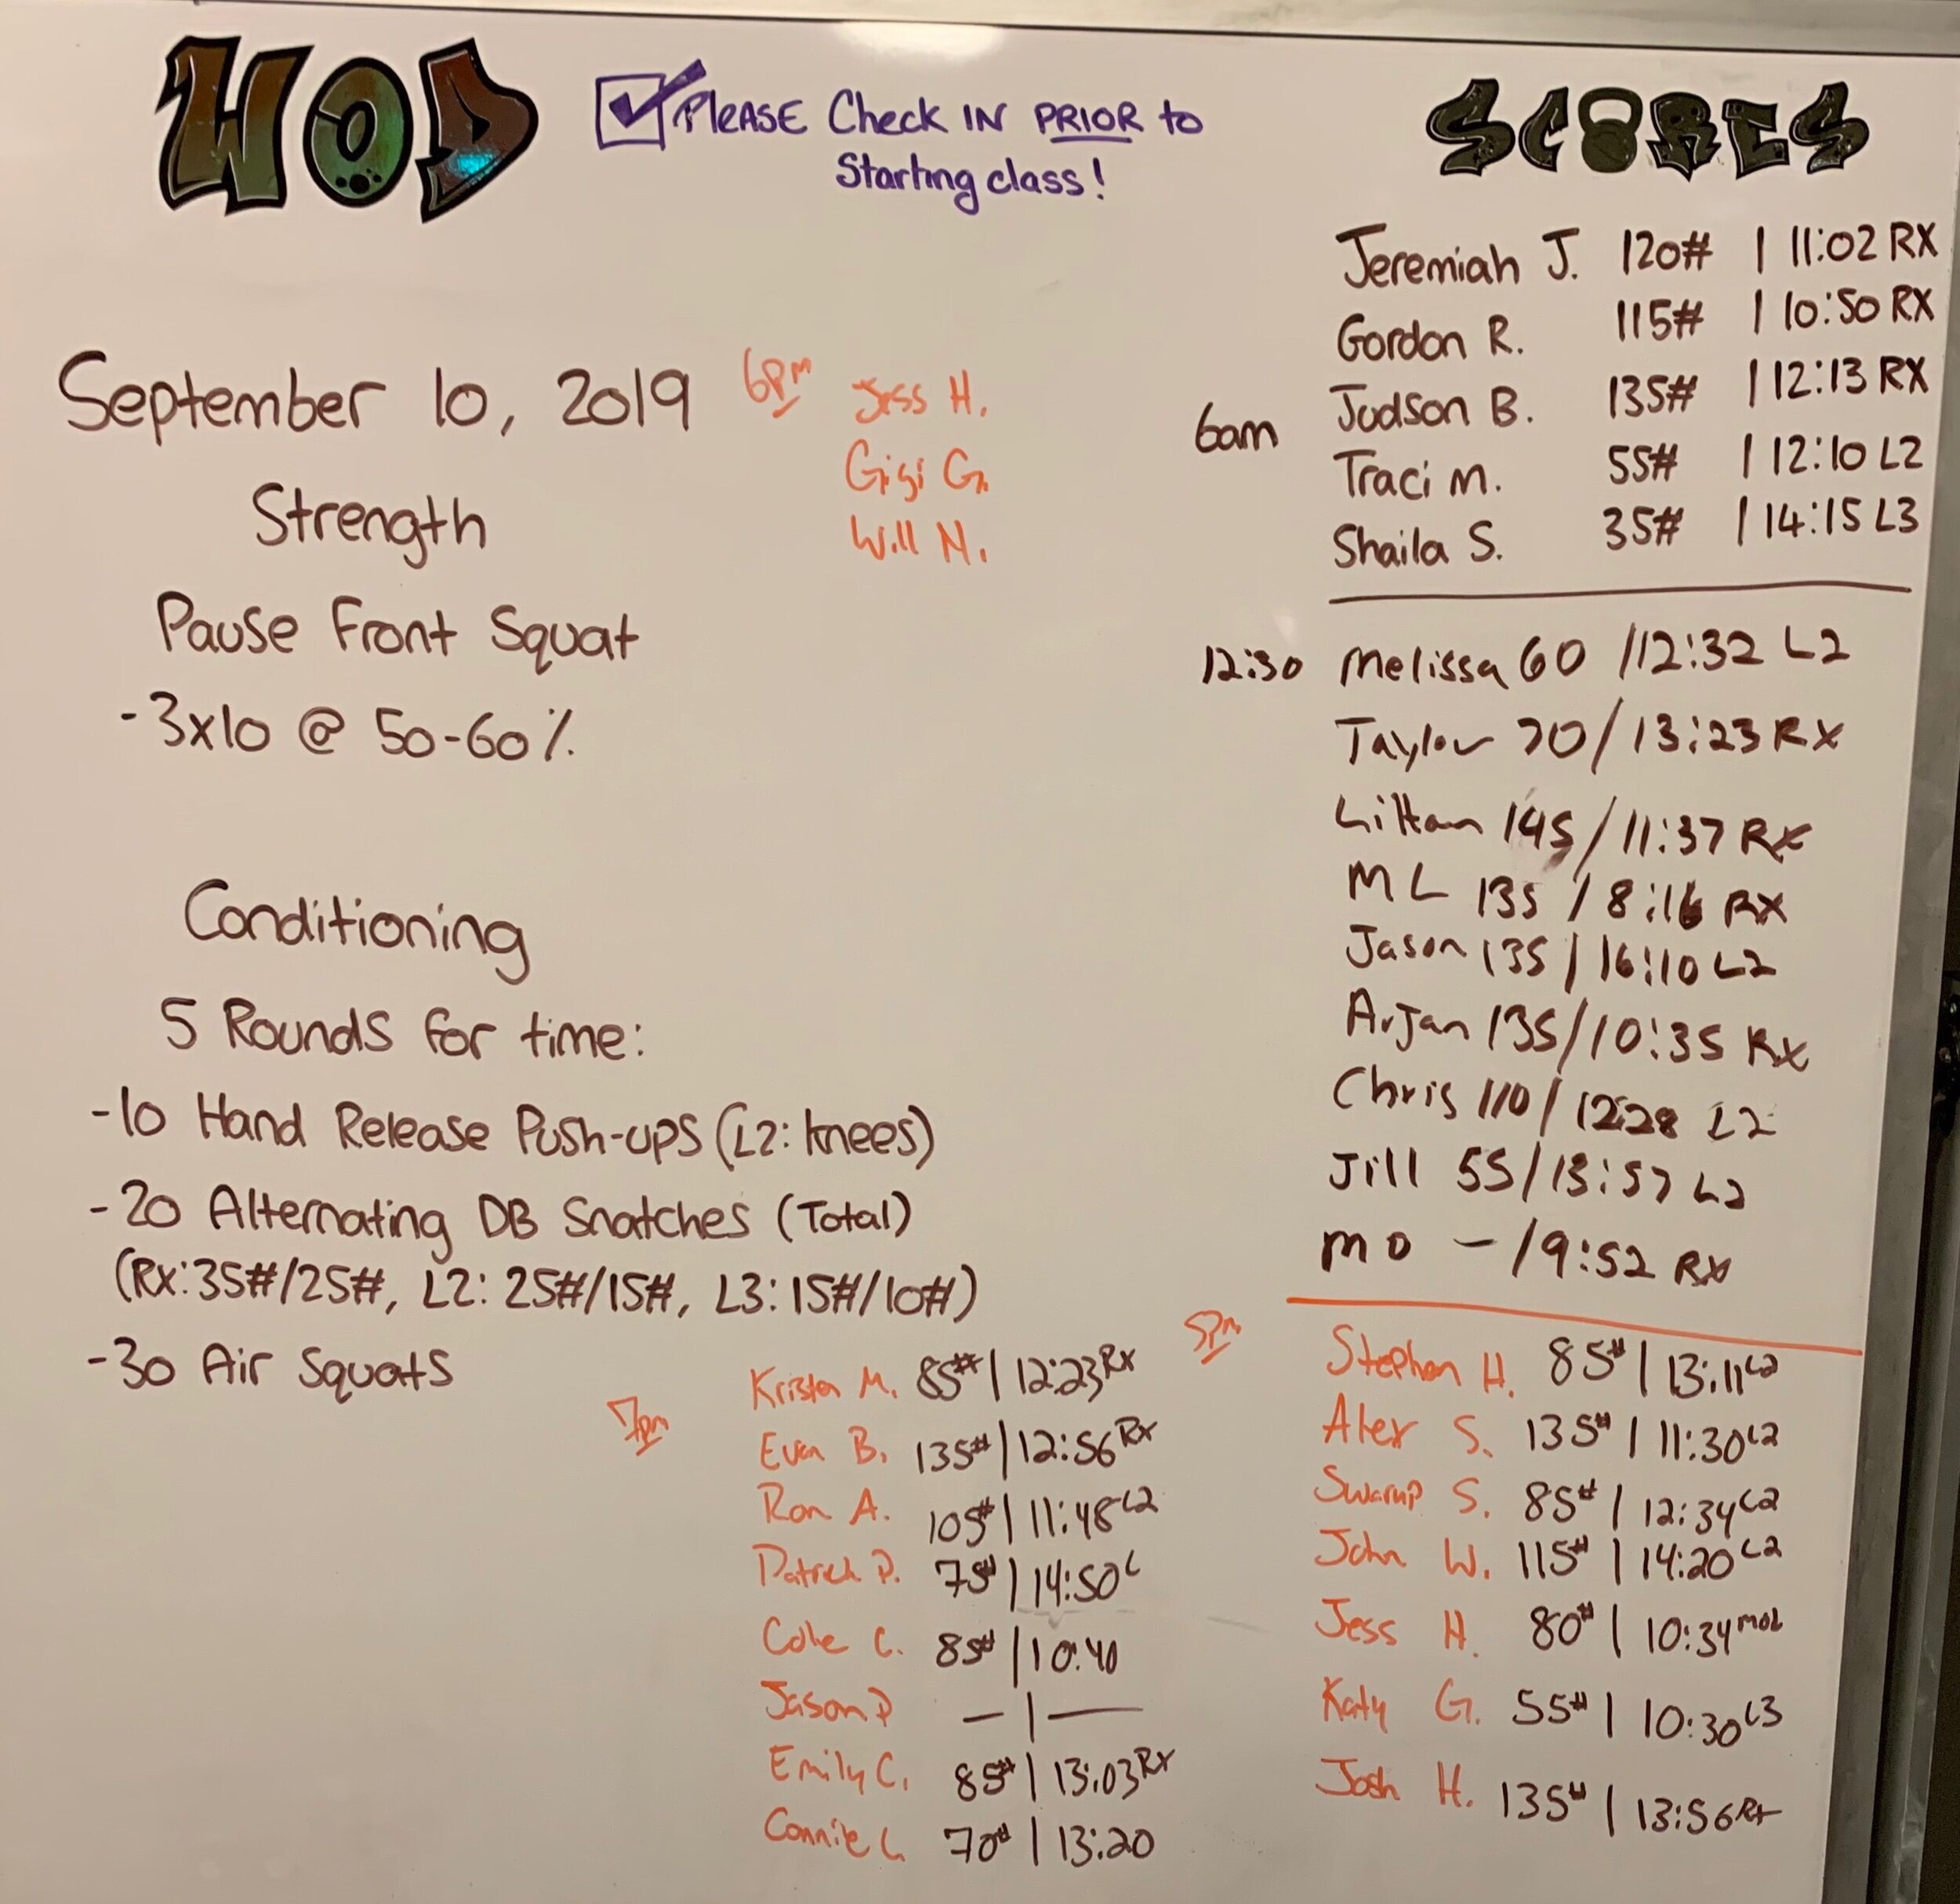 WOD
PLEASE Check IN PRIOR to
Starting class!
SCORES
September 10, 2019
Strength
Pause Front Squat
-3x10 @ 50-60%
Conditioning
5 Rounds for time:
-10 Hand Release Push-ups (L2: knees)
-20 Alternating DB Snatches (Total)
(Rx:35#/25#, L2: 25#/15#, L3:15#/10#)
-30 Air Squats
6pm Jess H.
Gigi G.
Will N.
6am
Jeremiah J. 120# | 11:02 RX
Gordon R. 115# | 10:50 RX
Judson B. 135# | 12:13 RX
Traci M. 55# | 12:10 L2
Shaila S. 35# | 14:15 L3
12:30 Melissa 60 /12:32 L2
Taylor 70/13:23 RX
145/11:37 RX
ML 135 /8:16 RX
Jason 135 | 16:10 L2
Arjan 135/10:35 Rx
Chris 110/12:28 L2
Jill 55/13:57 L2
MO - /9:52 RX
5pm
Stephen H. 85# | 13:11 L2
Alex S. 135# | 11:30 L2
Swarup S. 85# | 12:34 L2
John W. 115# | 14:20 L2
Jess H. 80# | 10:34 mod
Katy G. 55# | 10:30 L3
Josh H. 135# | 13:56 Rx
7pm
Kristen M. 85# | 12:23 Rx
Evan B. 135# | 12:56 Rx
Ron A. 105# | 11:48 L2
Patrick P. 75# | 14:50 L
C. 85# | 10:40
Jason P — | —
Emily C. 85# | 13:03 Rx
Connie L. 70# | 13:20